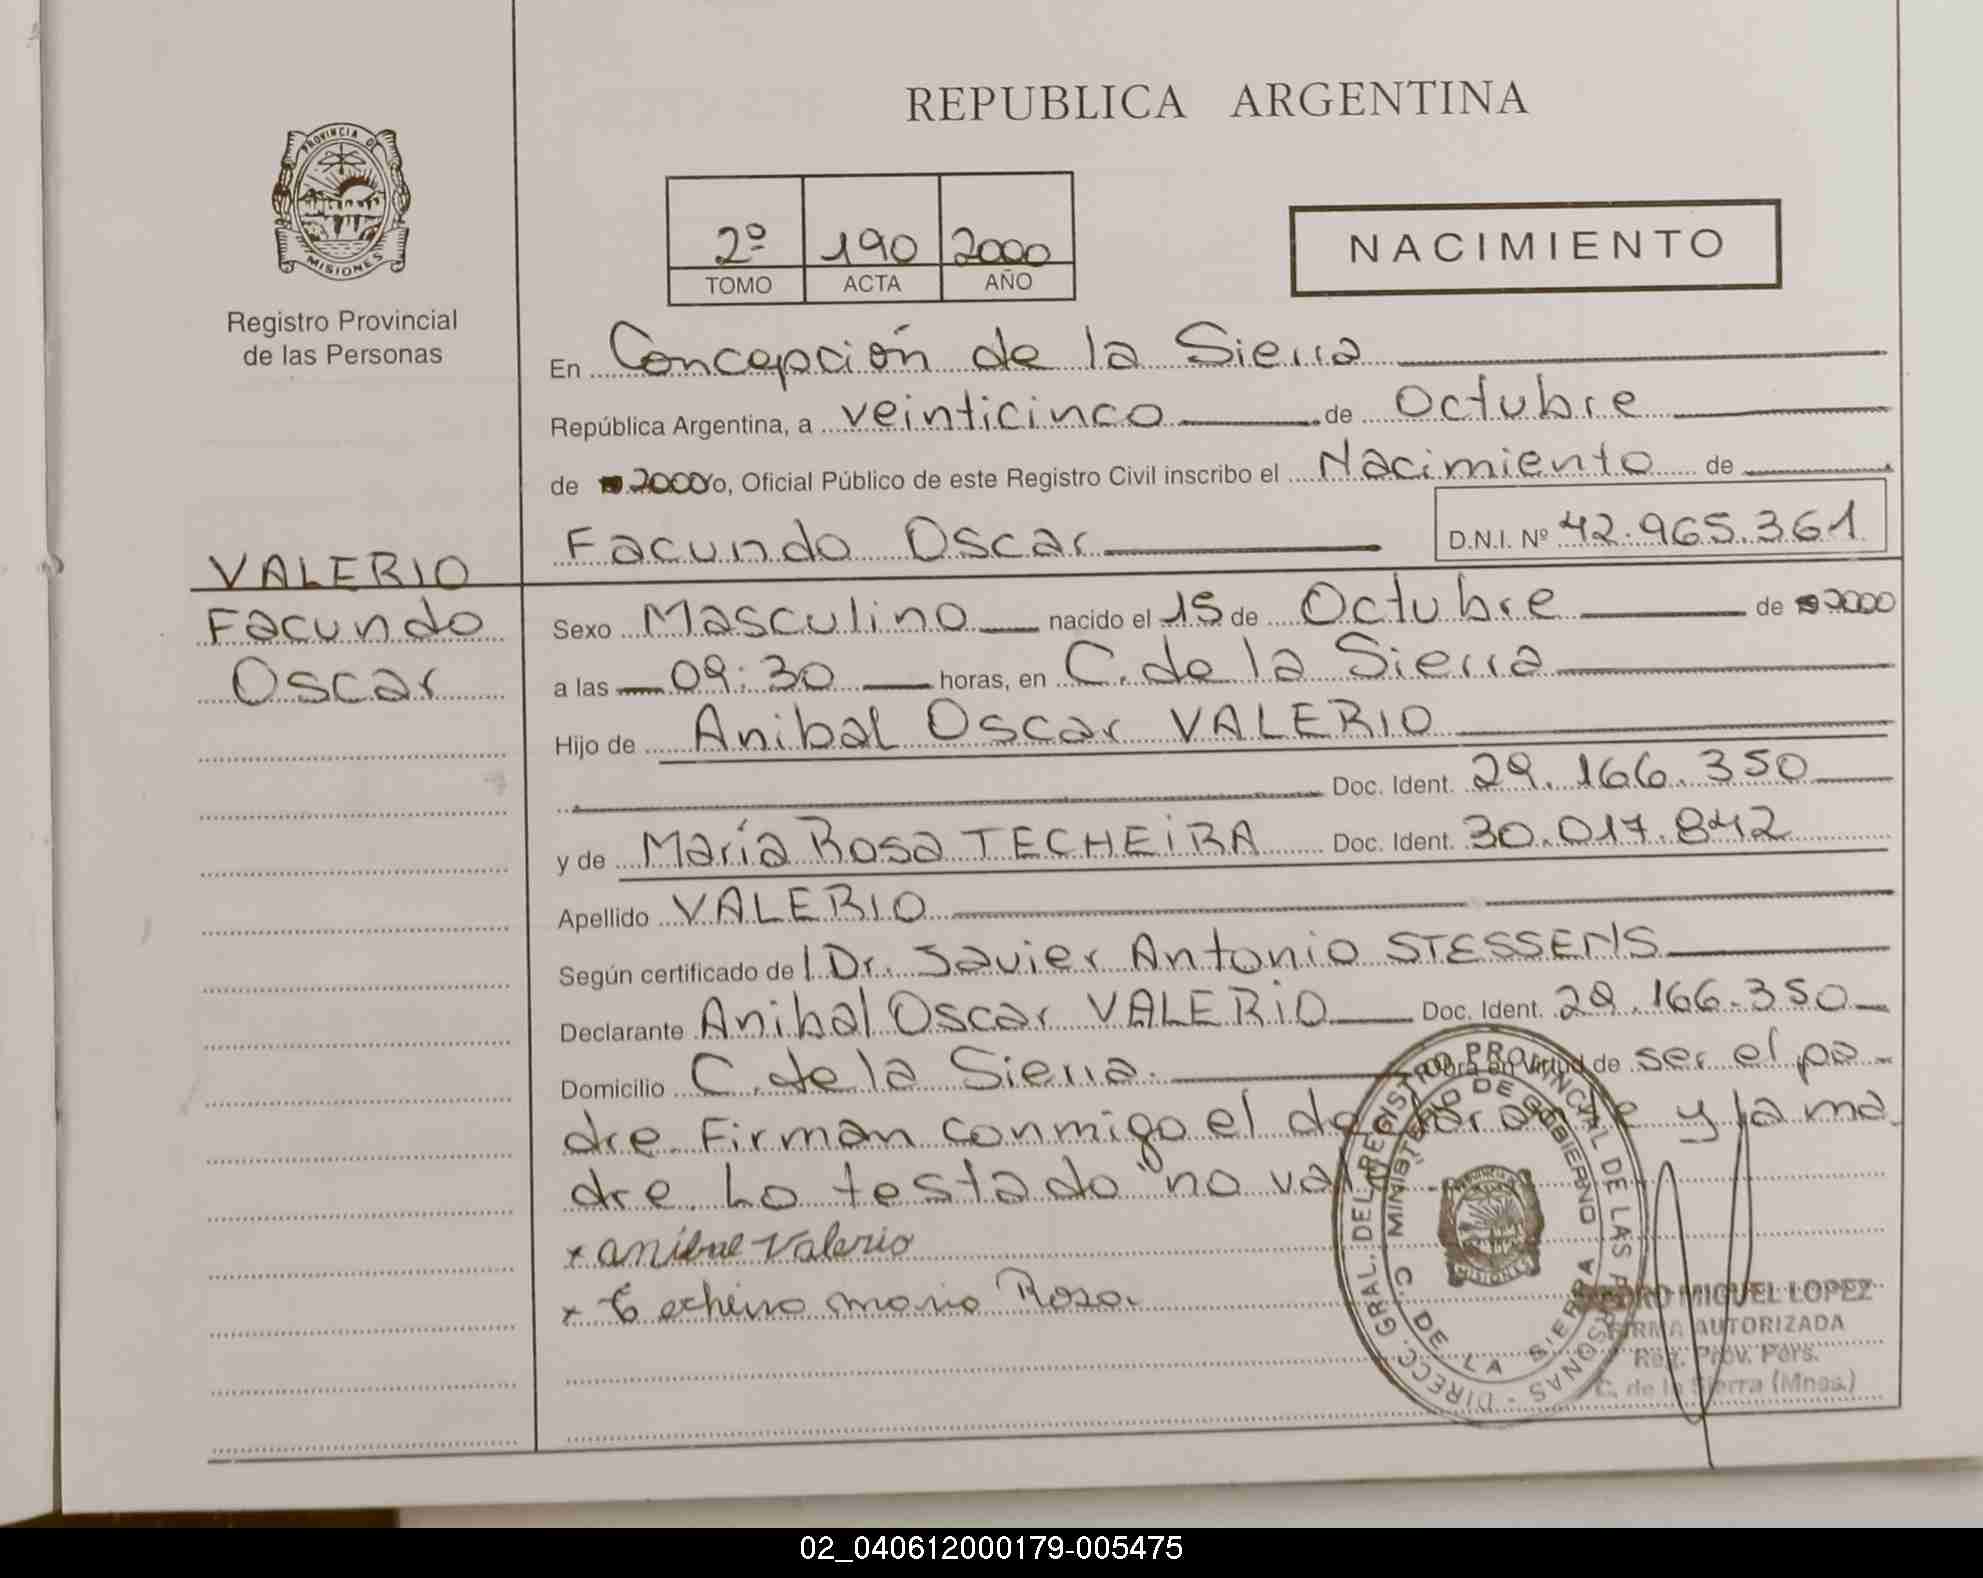 REPUBLICA ARGENTINA
PROVINCIA DE
MISIONES
2º 190 2000
TOMO ACTA AÑO
NACIMIENTO
Registro Provincial
de las Personas
En Concepción de la Sierra
República Argentina, a veinticinco de Octubre
de 2000 yo, Oficial Público de este Registro Civil inscribo el Nacimiento de
Facundo Oscar D.N.I. Nº 42.965.361
VALERIO
Facundo
Oscar
Sexo Masculino nacido el 15 de Octubre de 2000
a las 09:30 horas, en C. de la Sierra
Hijo de Anibal Oscar VALERIO
Doc. Ident. 29.166.350
y de María Rosa TECHEIRA Doc. Ident. 30.017.842
Apellido VALERIO
Según certificado de l Dr. Javier Antonio STESSENS
Declarante Anibal Oscar VALERIO Doc. Ident. 29.166.350
Domicilio C. de la Sierra. Obra en virtud de ser el pa-
dre. Firman conmigo el declarante y la ma-
dre. Lo testado "no vale".
x anibal Valerio
x Techeira maria Rosa.
DIRECC. GRAL. DEL REGISTRO PROVINCIAL DE LAS PERSONAS -
MINISTERIO DE GOBIERNO
C. DE LA SIERRA
MISIONES
PEDRO MIGUEL LOPEZ
FIRMA AUTORIZADA
Reg. Prov. Pers.
C. de la Sierra (Mnes.)
02_040612000179-005475